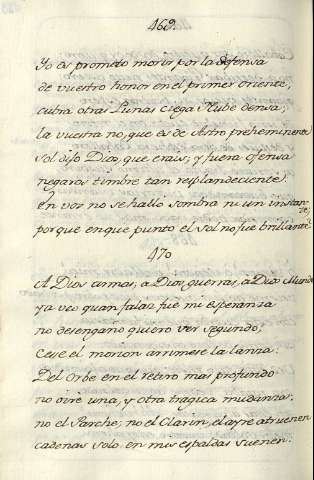 469.
Yo os prometo morir por la defensa
de vuestro honor en el primer oriente,
cubra otras Lunas ciega Nube densa;
la vuestra no, que es de Astro preheminente
Sol dijo Dios, que erais; y fuera ofensa
negaros timbre tan resplandeciente.
En vos no se hallo sombra ni un instante
porque en que punto el Sol no fue brillante?
470
A Dios armas, a Dios guerras, a Dios Mundo
ya veo quan falaz fue mi esperanza
no desengaño quiero ver segundo;
Cese el morion arrimese la lanza.
Del Orbe en el retiro mas profundo
no oire una, y otra tragica mudanza.
no el Parche; no el Clarin, el ayre atruenen
cadenas solo en mis espaldas suenen.